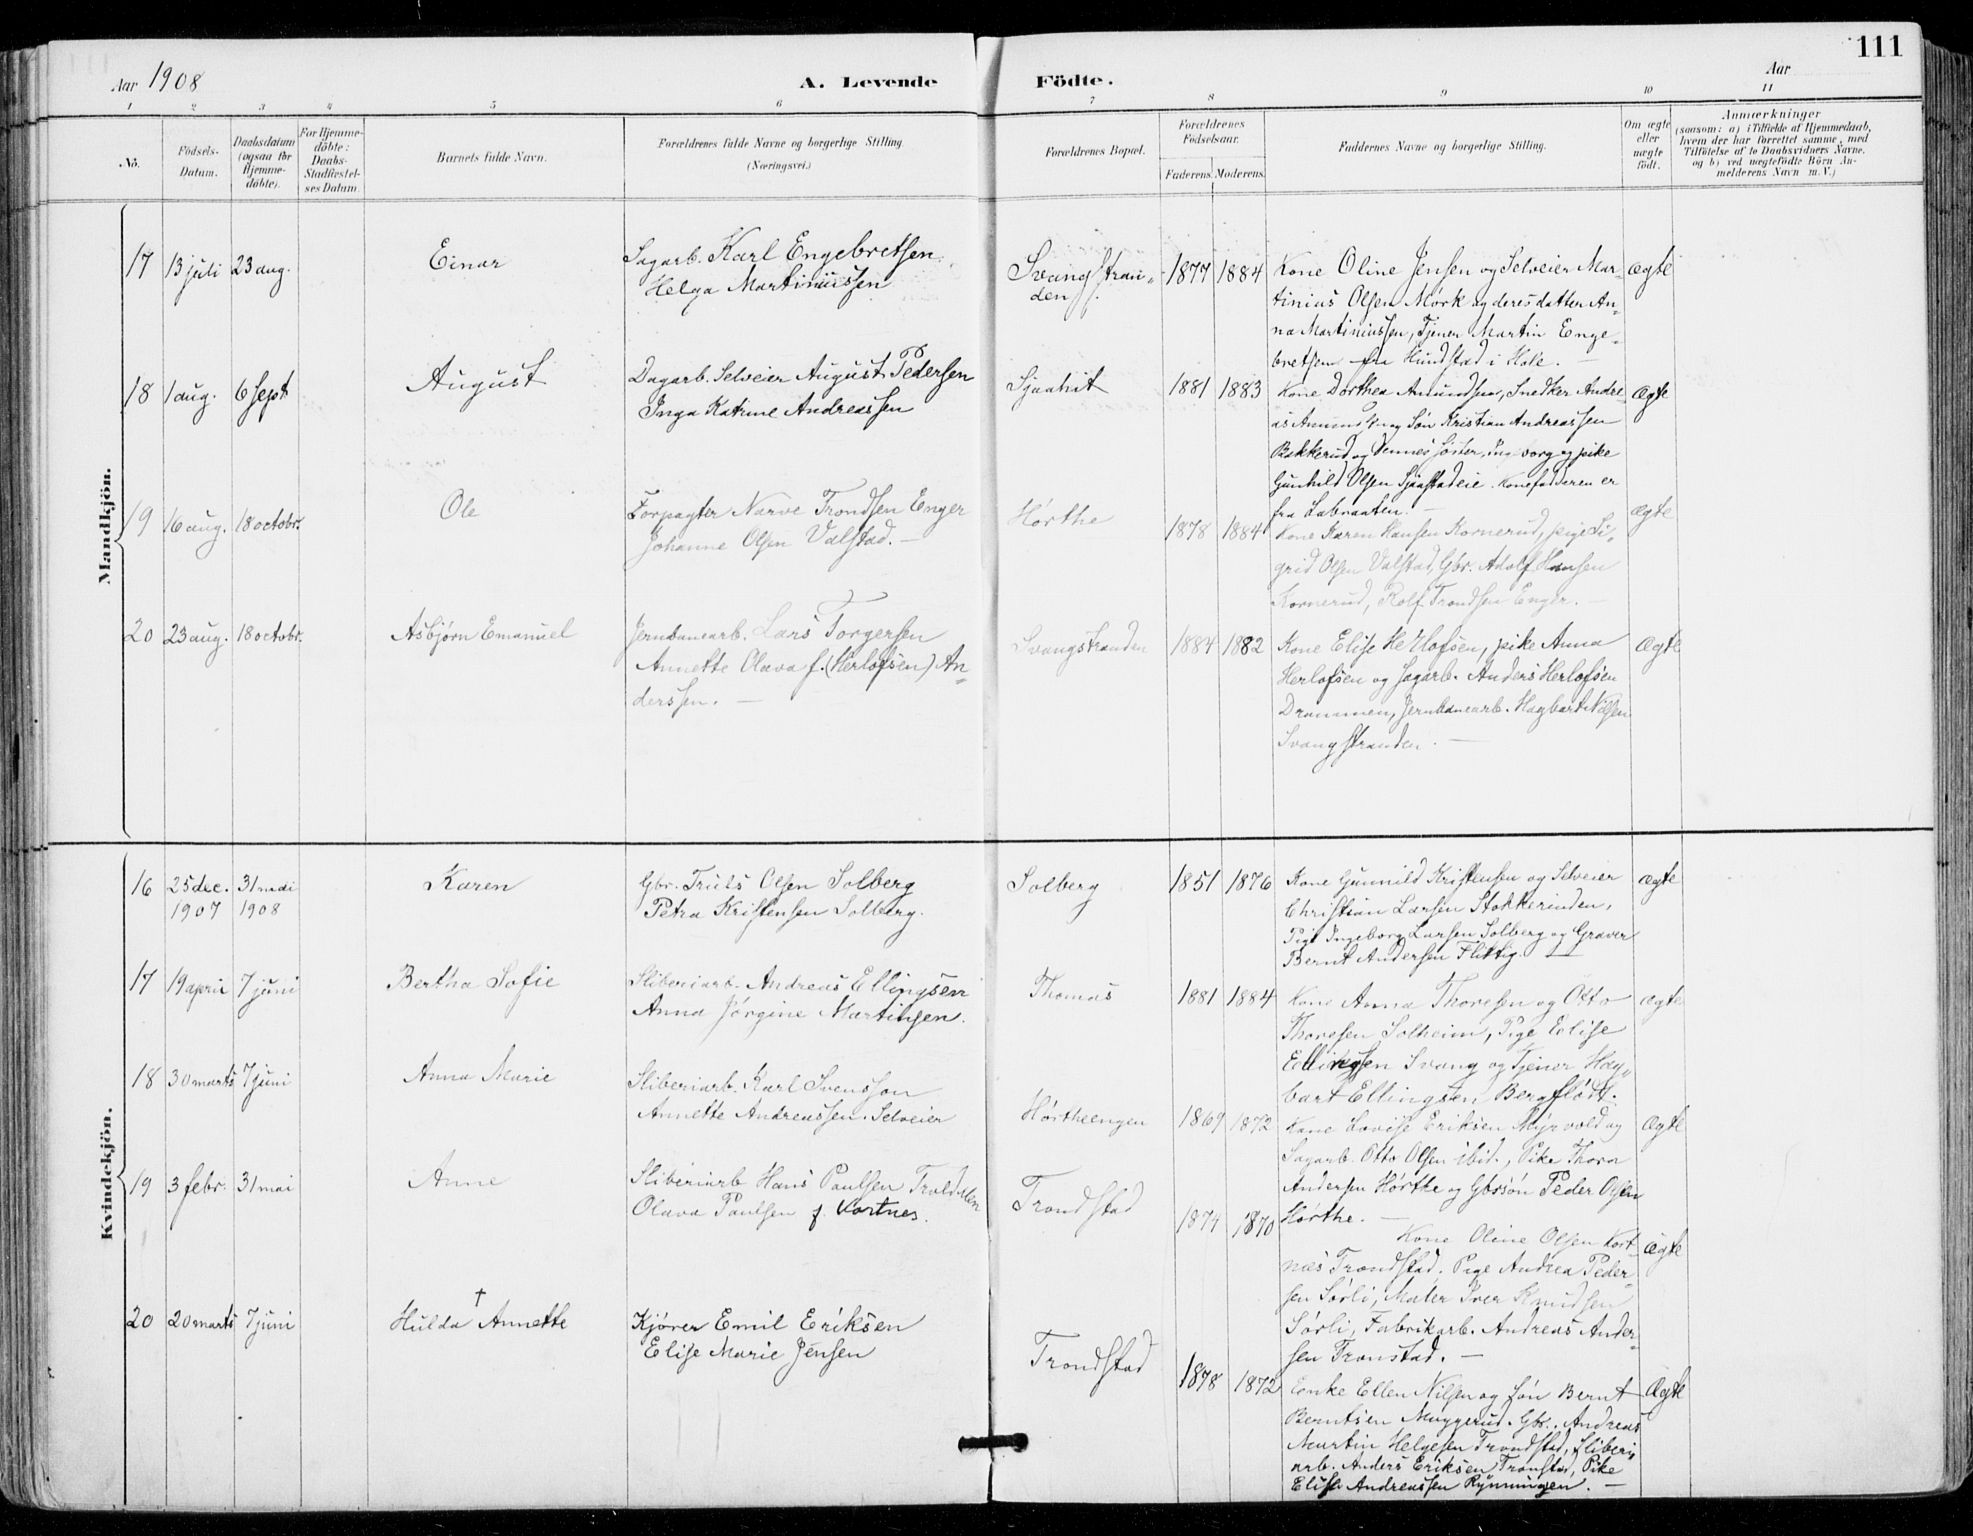 111
Aar 1908
A. Levende Födte.
Aar
1 2 3 4 5 6 7 8 9 10 11
No.
Födsels-Datum.
Daabsdatum (ogsaa for Hjemme-döbte).
For Hjemme-döbte: Daabs-Stadfæstel-ses Datum.
Barnets fulde Navn.
Forældrenes fulde Navne og borgerlige Stilling.
(Næringsvei.)
Forældrenes Bopæl.
Forældrenes Födselsaar.
Faderens. Moderens.
Faddernes Navne og borgerlige Stilling.
Om ægte eller uægte födt.
Anmærkninger
(saasom: a) i Tilfælde af Hjemmedaab,
hvem der har forrettet samme, med
Tilföielse af to Daabsvidners Navne,
og b) ved uægtefödte Börn An-
melderens Navn m. V.)
Mandkjön.
17 13 juli 23 aug. Einar
Sagarb. Karl Engebretsen
Helga Martiniussen
Svangstran-
den
1877 1884
Kone Oline Jensen og Selveier Mar-
tinius Olsen Mørk og deres datter An-
na Martiniussen, Tjener Martin Enge-
bretsen fra Hundstad i Hole.
ægte
18 1 aug. 6 Sept August
Dagarb. Selveier August Pedersen
Inga Katrine Andreassen
Sjaahit
1881 1883
Kone Dorthea Amundsen, Snedker Andre-
as Amundsen og Søn Kristian Andreassen
Bakkerud og Dennes søster, Ingeborg og pike
Gunhild Olsen Sjaastadeie. Konefadderen er
fra Labraaten.
Ægte
19 16 aug. 18 octobr. Ole
Forpagter Narve Trondsen Enger
Johanne Olsen Valstad.
Hørthe
1878 1884
Kone Karen Hansen Kornerud, pige Si-
grid Olsen Valstad, Gbr. Adolf Hansen
Kornerud, Rolf Trondsen Enger.
ægte
20 23 aug. 18 octobr. Asbjørn Emanuel
Jernbanearb. Lars Torgersen
Annette Olava f. (Herlofsen) An-
derssen.
Svangstranden
1884 1882
Kone Elise Herlofsen, pike Anna
Herlofsen og Sagarb. Anders Herlofsen
Drammen, Jernbanearb. Hagbart Nilsen
Svangstranden.
Ægte
Kvindekjön.
16 25 dec. 1907 31 mai 1908 Karen
Gbr. Truls Olsen Solberg
Petra Kristensen Solberg.
Solberg
1851 1876
Kone Gunnild Kristensen og Selveier
Christian Larsen Stokkerinden,
Pige Ingeborg Larsen Solberg og Graver
Bernt Andersen Flittig.
ægte
17 19 april 7 juni Bertha Sofie
Sliberiarb. Andreas Ellingsen
Anna Jørgine Martinsen.
Thomas
1881 1884
Kone Anna Thoresen og Otto
Thoresen Solheim, Pige Elise
Ellingsen Svang og Tjener Hag-
bart Ellingsen Bergfløtt.
ægte
18 30 marts 7 juni Anna Marie
Sliberiarb. Karl Svensson
Annette Andreassen. Selveier
Hørtheengen
1869 1872
Kone Lovise Eriksen Myrvold og
Sagarb. Otto Olsen ibid., Pike Thora
Andersen Hørthe og Gbrsøn Peder Olsen
Hørthe.
Ægte
19 3 febr. 31 mai Anne
Sliberiarb Hans Paulsen
Olava Paulsen f. Kortnes.
Trondstad
1874 1870
Kone Oline Olsen Kort-
næs Trondstad, Pige Andrea Peder-
sen Sørli, Maler Iver Knudsen
Sørli, Fabrikarb. Andreas Ander-
sen Tronstad.
Ægte
20 20 marts 7 juni Hulda Annette †
Kjører Emil Eriksen
Elise Marie Jensen
Trondstad
1878 1872
Enke Ellen Nilsen og søn Bernt
Berntsen Muggerud. Gbr. Andreas
Martin Helgesen Trondstad, sliberi-
arb. Anders Eriksen Tronstad, Pike
Elise Andreassen Rynningen.
Ægte